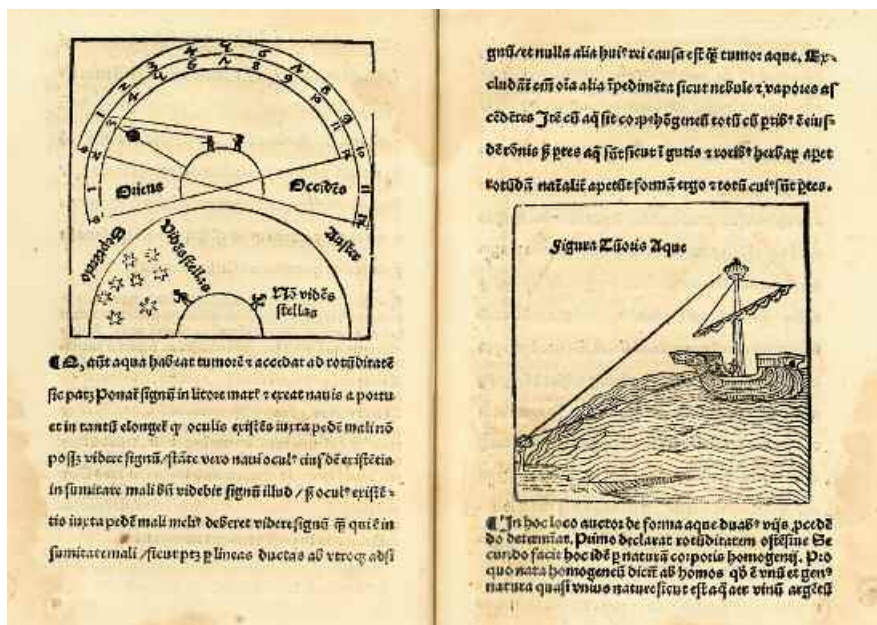 Oriens
Occidēs
Septētrio
Vidēs stellas
Auster
Nō vidēs
stellas
¶ Q, aūt aqua habeat tumorē ⁊ accedat ad rotūditatē
sic patꝫ Ponat᷑ signū in litore mar᷑ ⁊ exeat nauis a portu
et in tantū elonget᷑ ꝙ oculis existēs iuxta pedē mali nō
possꝫ videre signū/stāte vero naui oculꝰ eiusdē existētis
in sumitate mali bn̄ videbit signū illud / sꝫ oculꝰ existē⸗
tis iuxta pedē mali meliꝰ deberet videre signū qꝫ̄ qui ē in
sumitate mali /sicut ptꝫ ꝑ lineas ductas ab vtroqꝫ ad si
gnū/et nulla alia huiꝰ rei causa est qꝫ̄ tumor aque. Ex⸗
cludāt᷑ em̄ oīa alia īpedimēta sicut nebule ⁊ vapores as
cēdētes Itē cū aqꝫ sit corpꝰ hōgeneū totū cū ꝑtibꝰ ē eius⸗
dē rōnis sꝫ ꝑtes aqꝫ sūt sicut ī gutis ⁊ roribꝰ herbaꝝ apꝫet
rotūdā nat᷑alit᷑ apetūt formā ergo ⁊ totū cuiꝰ sūt ꝑtes.
Figura Tūoris Aque
¶ In hoc loco auctor de forma aque duabꝰ vijs ꝓcedē
do determīat. Primo declarat rotūditatem ostēsiue Se
cundo facit hoc idē ꝑ naturā corporis homogenij. Pro
quo nota homogeneū dicit᷑ ab homos qd̄ ē vnū et genꝰ
natura quasi vnius nature sicut est aq̄ aer vinū argētū